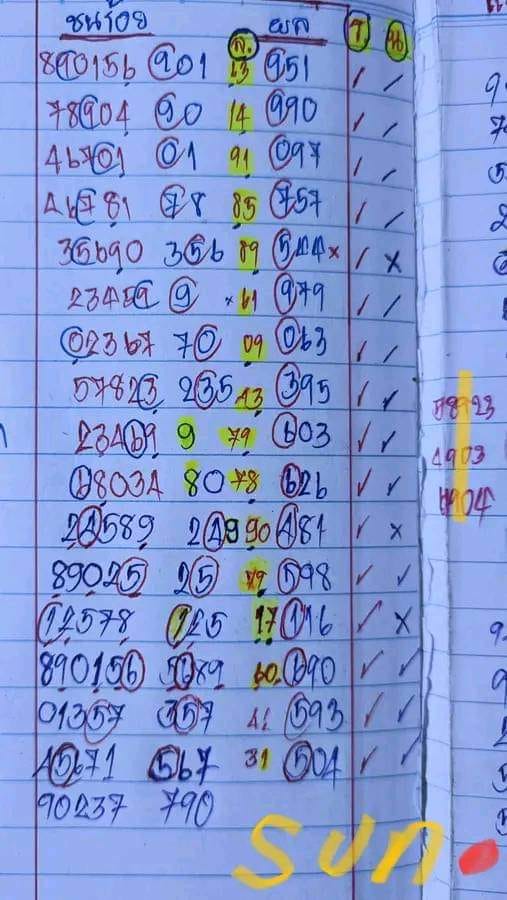 ชนร้อย ล. ผล ว น
890156 901 63 951
78904 90 14 990
46701 01 91 097
46781 78 85 757
35690 356 89 544 x
23459 9 x 61 979
02367 70 09 063
57823 235 43 395
23469 9 79 603
68034 80 78 626
24589 249 90 481
89025 25 79 598
12578 125 17 116
890156 5689 60 690
01357 357 41 593
45671 567 31 504
90237 790
4903
8904
sun